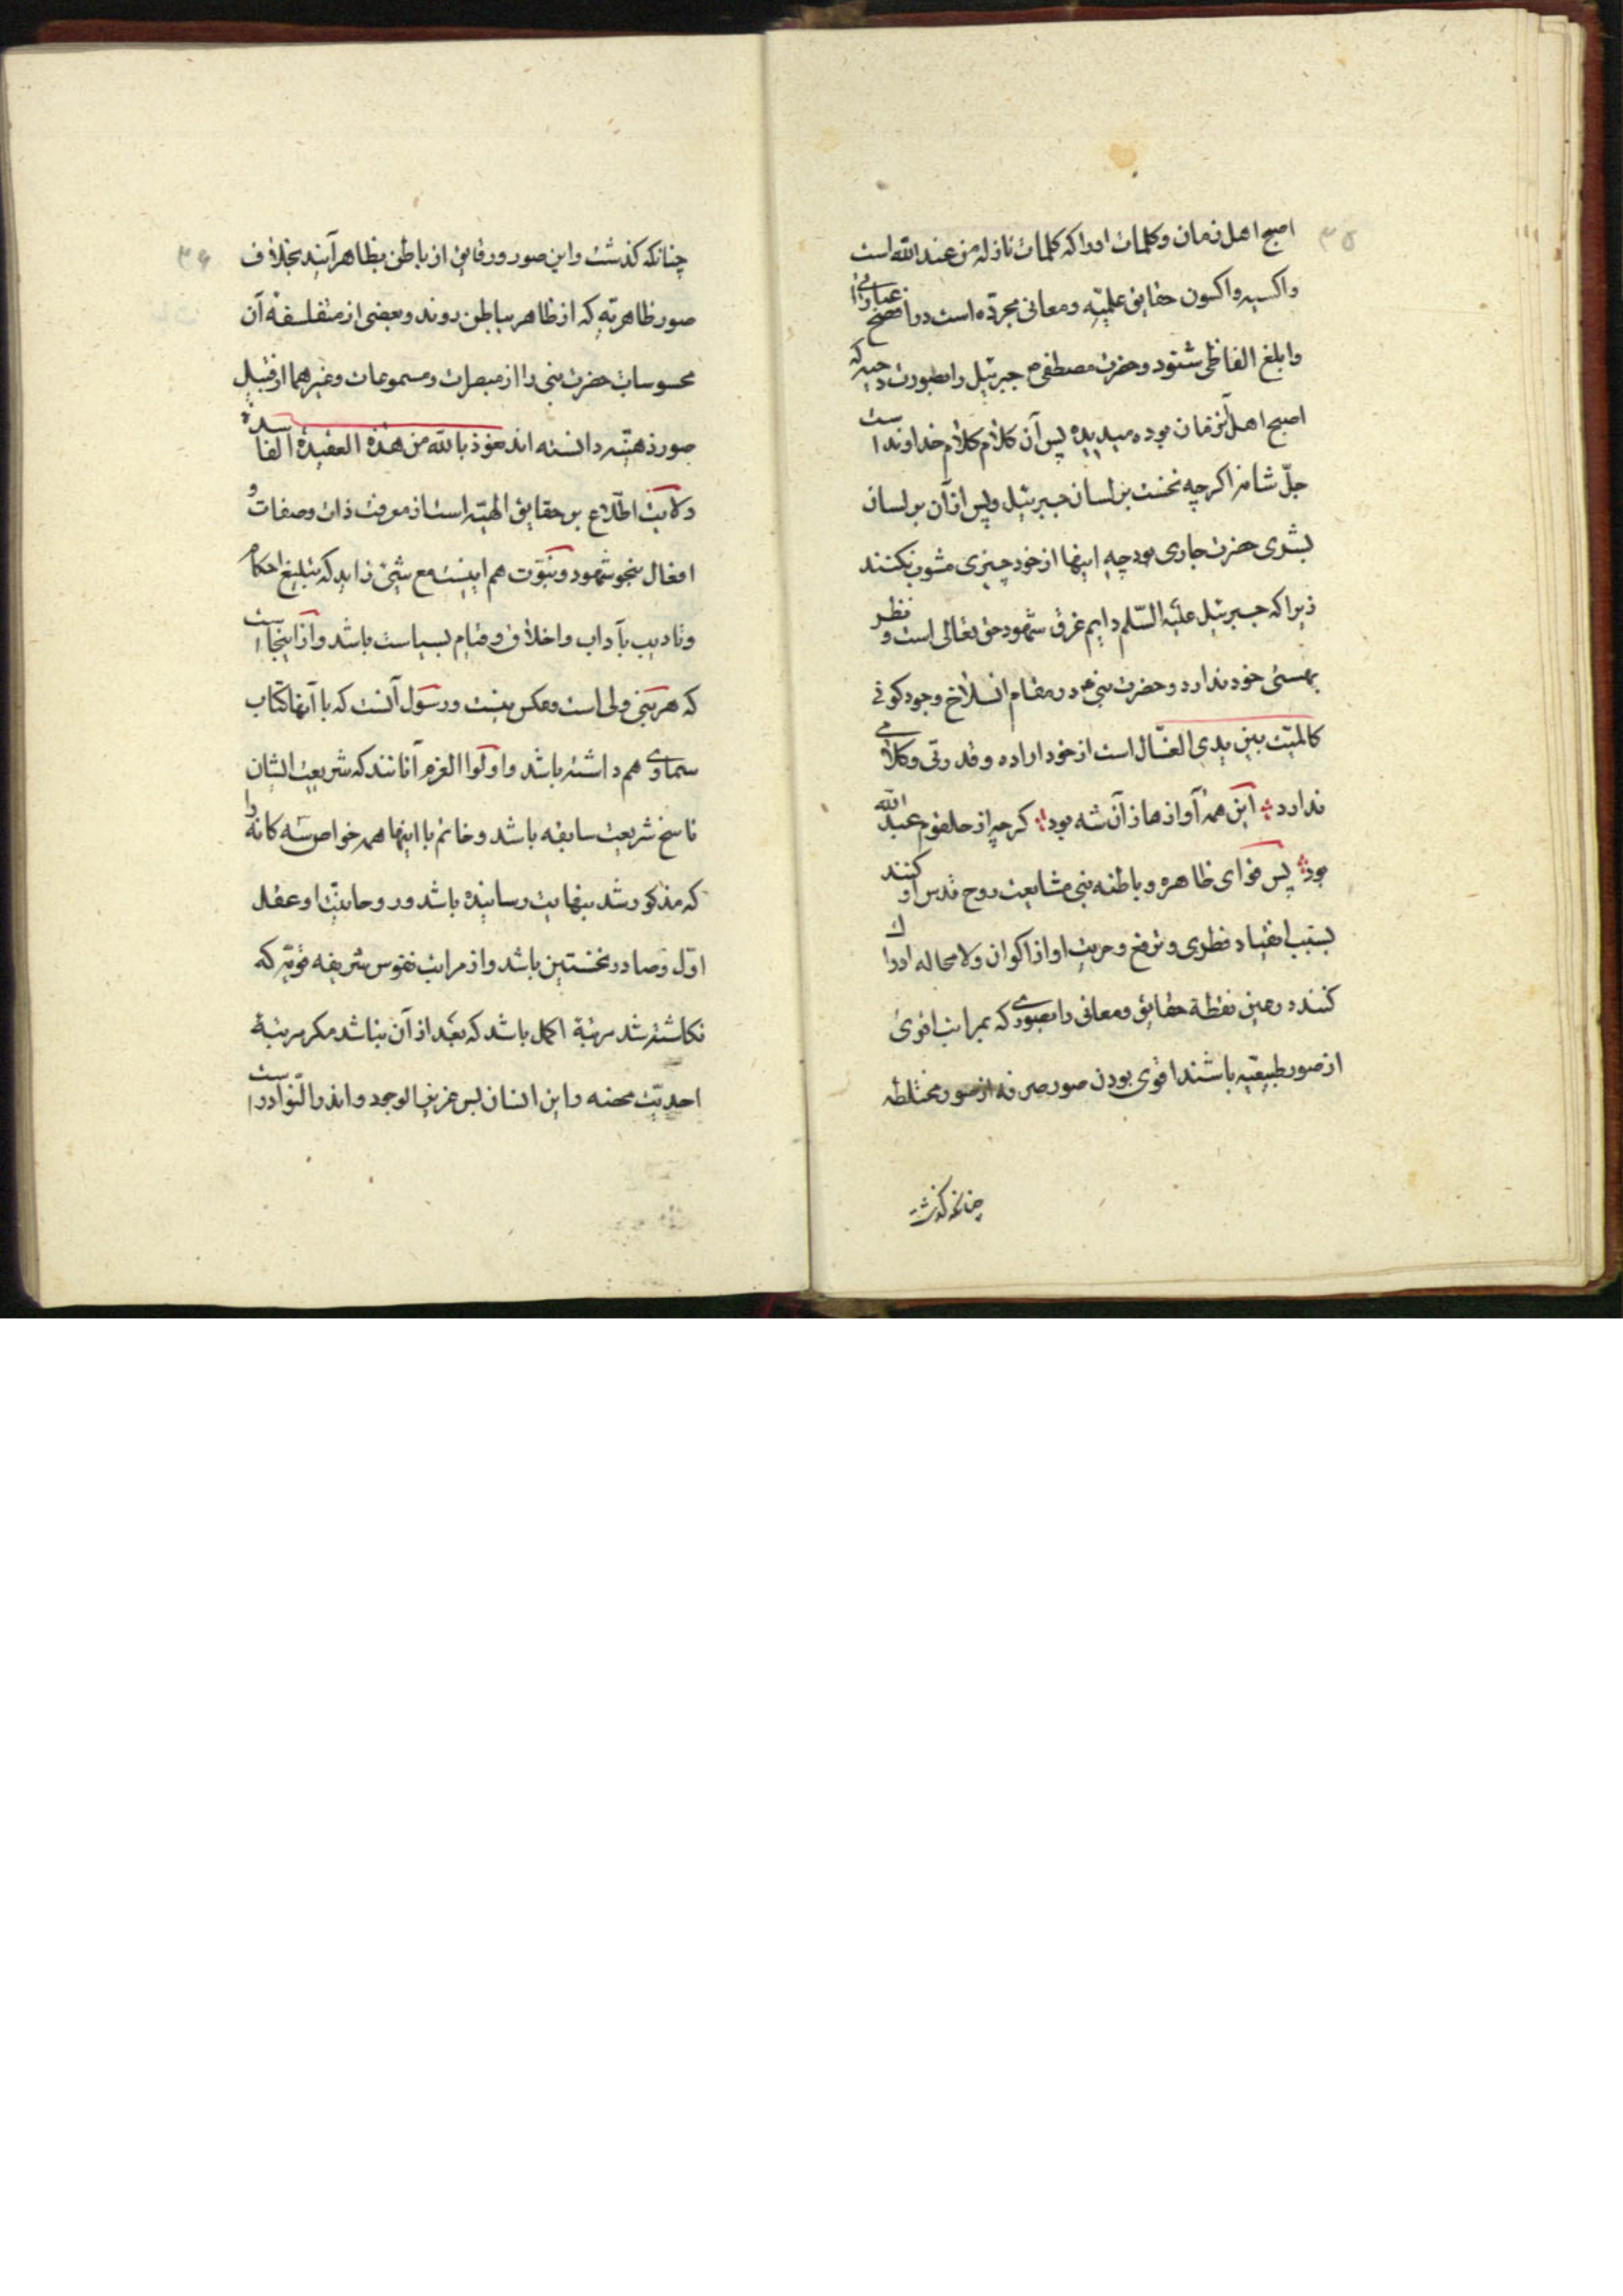 ۳۵
اصبح اهل زمان و کلمات او را که کلمات نازله من عند الله است
و اکسیه و اکسون حقایق علمیّه و معانی مجرّده است در افصح عباراتی
و ابلغ الفاظی شنود و حضرت مصطفی ص جبرئیل را بصورت دحیه که
اصبح اهل آنزمان بوده میدیده پس آن کلام کلام خداوند است
جلّ شانه اگرچه نخست بر لسان جبرئیل و پس از آن بر لسان
بشری حضرت جاری بود چه اینها از خود چیزی مشوب نکنند
زیرا که جبرئیل علیه السّلم دایم غرق شهود حق تعالی است و نظر
بهستی خود ندارد و حضرت نبی ص در مقام انسلاخ وجود کونی
کالمیّت بین یدی الغسّال است از خود اراده و قدرتی و کلامی
ندارد این همه آوازها از آن شه بود گرچه از حلقوم عبد الله
بود پس قوای ظاهره و باطنه نبی مشایعت روح قدس او کنند
بسبب انقیاد فطری و ترفع و حریت او از اکوان و لا محاله ادراک
کنند در عین یقظة حقایق و معانی را بصوری که بمراتب اقوی
از صور طبیعیّه باشند اقوی بودن صور صرفه از صور مختلطه
چنانکه گذشت
۳۶
چنانکه کذشت و این صور و رقایق از باطن بظاهر آیند بخلاف
صور ظاهریّه که از ظاهر بباطن روند و بعضی از متفلسفه آن
محسوسات حضرت نبی را از مبصرات و مسموعات و غیرهما از قبیل
صور ذهنیّه دانسته اند نعوذ بالله من هذه العقیدة الفاسدة
ولایت اطّلاع بر حقایق الهیّه است از معرفت ذات و صفات و
افعال بنحو شهود و نبوّت هم اینست مع شیئ زاید که تبلیغ احکام
و تادیب بآداب و اخلاق و قیام بسیاست باشد و از اینجا است
که هر نبی ولی است و عکس نیست و رسول آنست که با آنها کتاب
سماوی هم داشته باشد و اولوا العزم آنانند که شریعت ایشان
ناسخ شریعت سابقه باشد و خاتم با اینها همه خواص سه کانه را
که مذکور شد بنهایت رسانیده باشد و روحانیّت او عقل
اوّل و صادر نخستین باشد و از مراتب نفوس شریفه قویّه که
نکاشته شد مرتبة اکمل باشد که بعد از آن نباشد مکر مرتبة
احدیّت محضه و این انسان بس عزیز الوجود و اندر النّوادر است